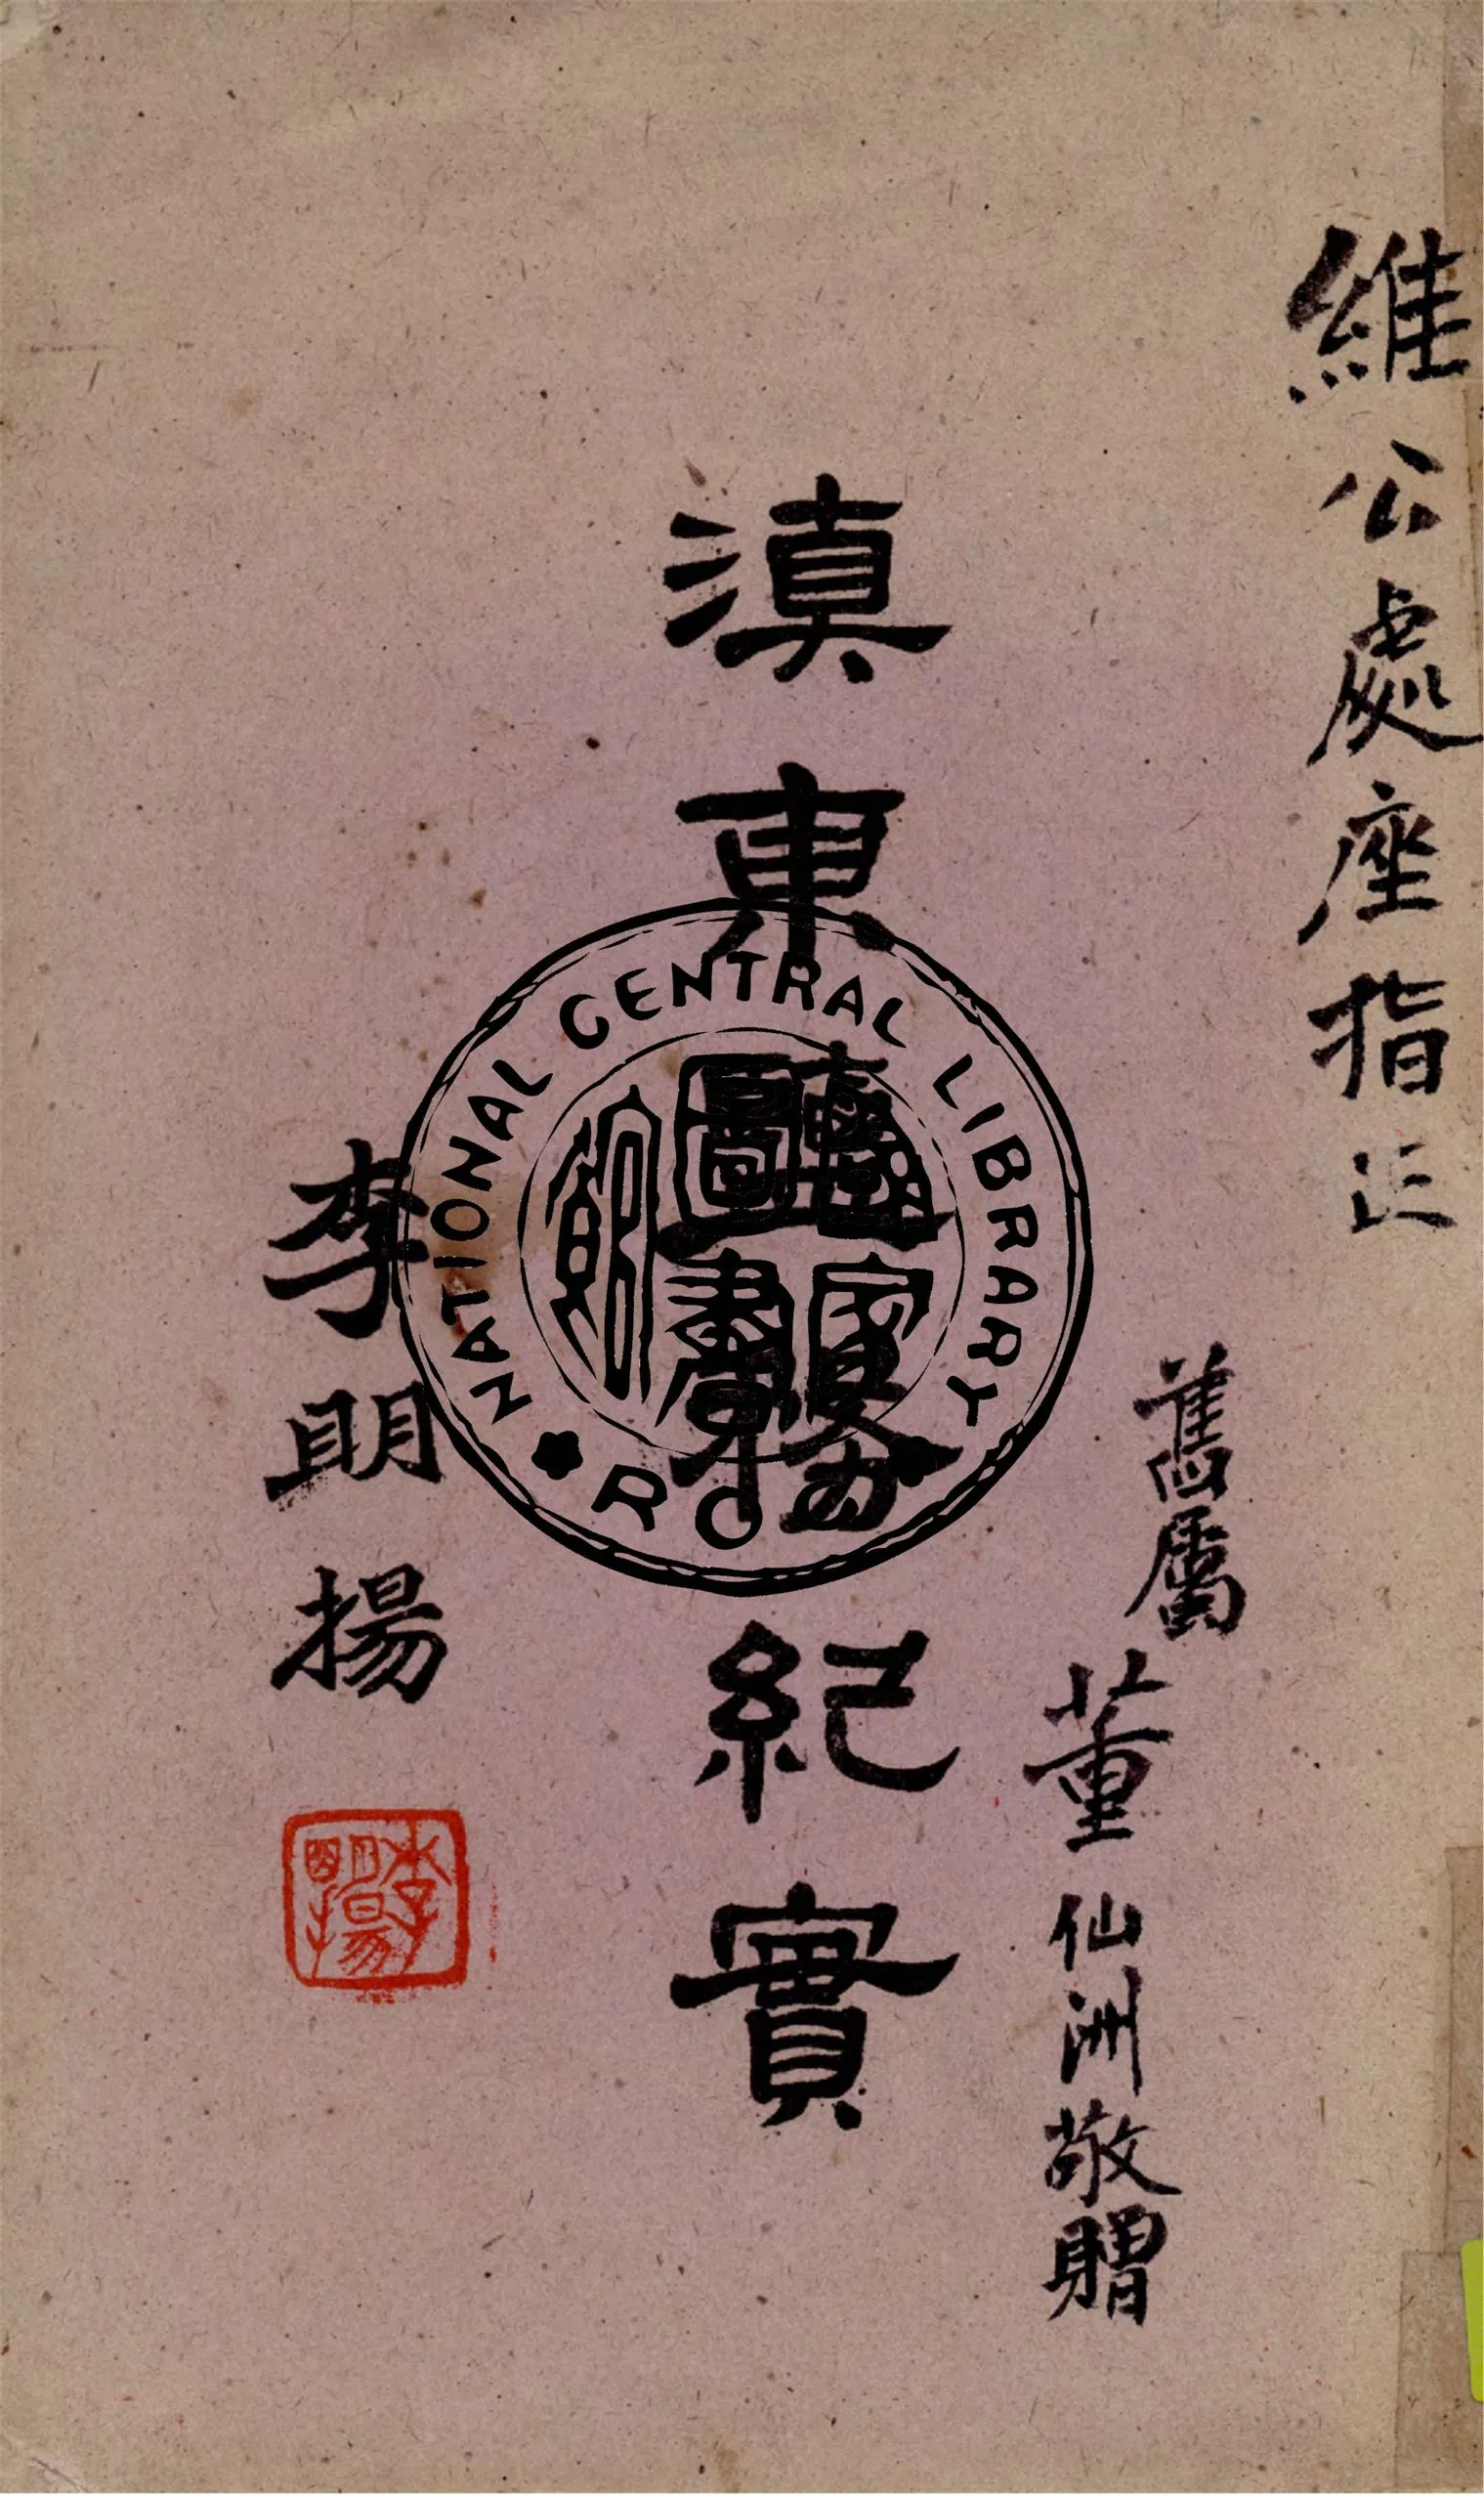 維公處座指正
舊屬董仙洲敬贈
滇東務紀實
李明揚
李明揚
NATIONAL CENTRAL LIBRARY
國家圖書館
ROC